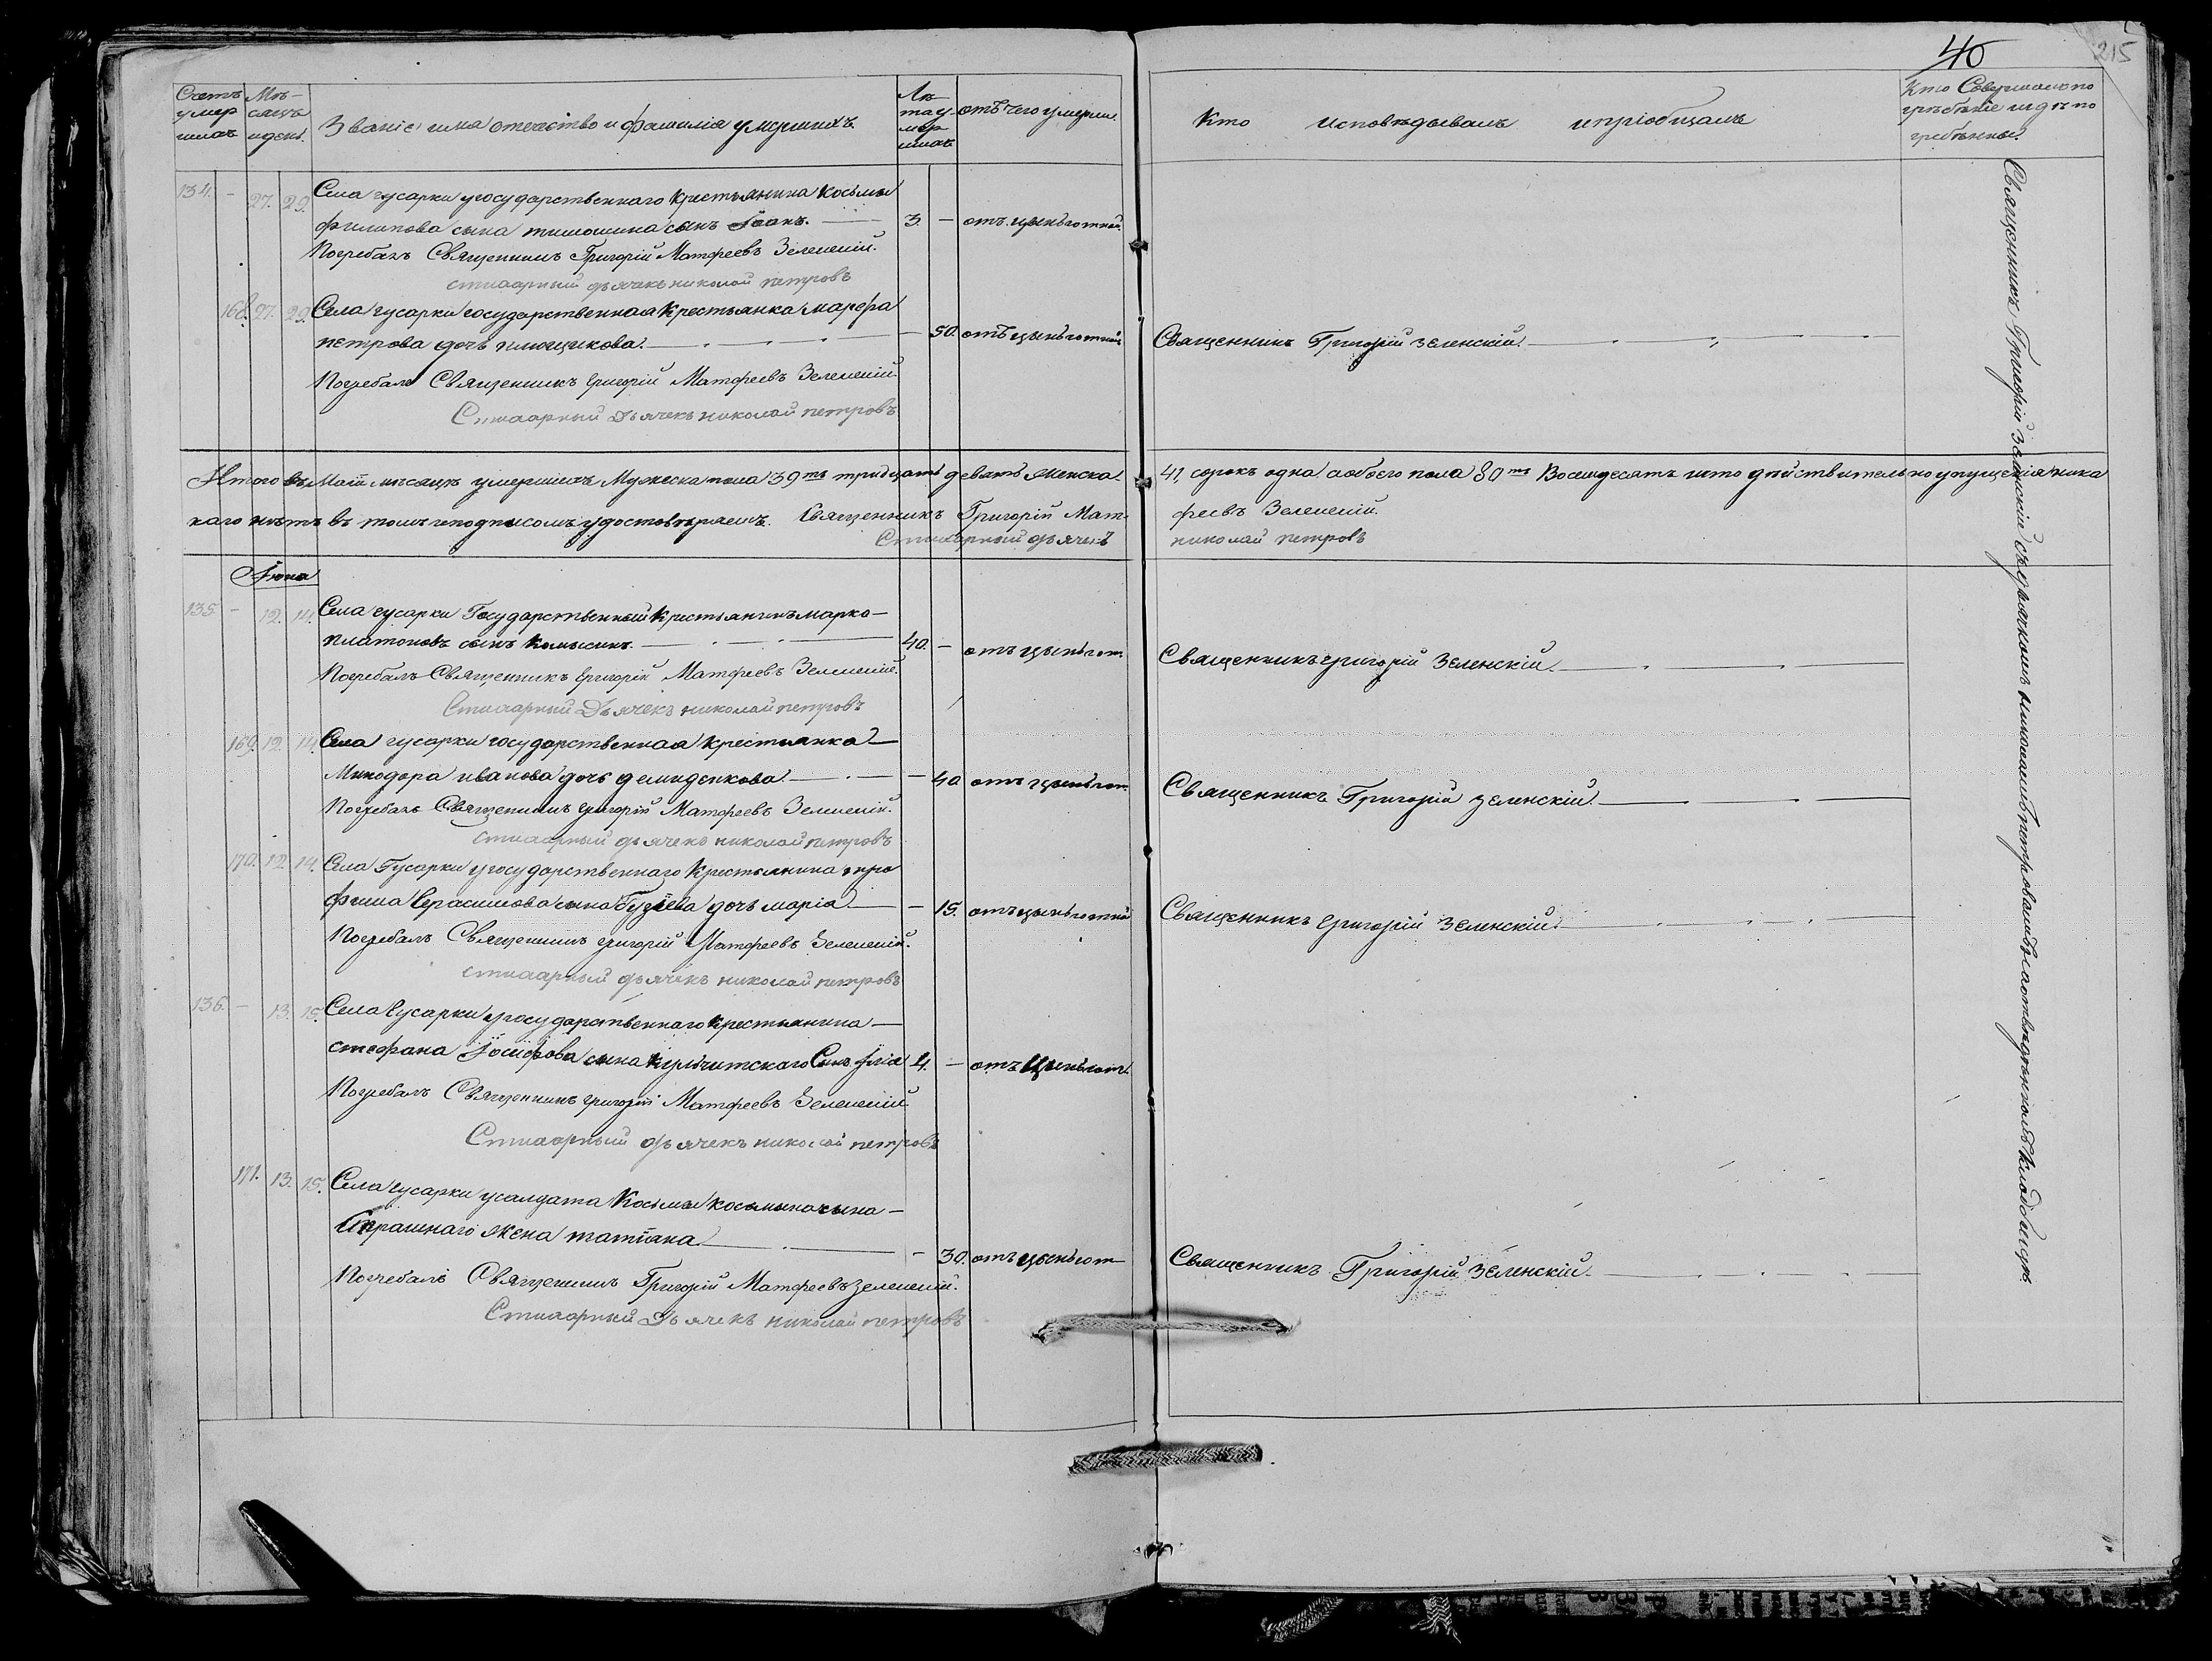 40
215
Счетъ умершихъ
Мѣсяцъ и день.
Званіе имя отечество и фамилія умершихъ
Лѣта умершихъ
отъ чего умерли.
Кто исповѣдывалъ и пріобщалъ
Кто Совершалъ погребѣніе и гдѣ погребѣнны.
134. — 27. 29. Села гусарки угосударственнаго Крестьянина Косьмы
филипова сына тимошина сынъ Іоанъ. 3. — отъ цынготной.
Погребалъ Священникъ Григорій Матфеевъ Зеленскій.
стихарный дьячекъ николай петровъ
168. 27. 29. Села гусарки государственная Крестьянка марфа
петрова дочь плющикова. — 50. отъ цынготной Священникъ Григорій зеленскій.
Погребалъ Священникъ Григорій Матфеевъ Зеленскій.
Стихарный Дьячекъ николай петровъ
Итого въ Маіи мѣсяцѣ умершихъ Мужеска пола 39ть тридцать девять Женска. 41, сорокъ одна. а обоего пола 80тъ Восемдесятъ и что дѣйствительно упущенія ника
каго нѣтъ въ томъ и подписомъ удостовѣряемъ. Священникъ Григорій Мат- феевъ Зеленскій.
Стихарный дьячекъ николай петровъ
Іюна
135. — 12. 14. Села гусарки Государственный Крестьянинъ марко—
платоновъ сынъ 40. — отъ цынгот. Священникъ григорій Зеленскій.
Погребалъ Священникъ григорій Матфеевъ Зеленскій.
Стихарный Дьячекъ николай петровъ
169. 12. 14. Села гусарки государственная крестьянка—
Минодора иванова дочь демиденкова — 40 отъ цынгот. Священникъ Григорій зеленскій.
Погребалъ Священникъ григорій Матфеевъ Зеленскій.
Стихарный дьячекъ николай петровъ
170. 12. 14. Села Гусарки угосударственнаго Крестьянина тро
фима Герасимова сына дочь марія. — 15. отъ цынготной Священникъ григорій Зеленскій.
Погребалъ Священникъ григорій Матфеевъ Зеленскій.
стихарный дьячекъ николай петровъ
136. — 13. 15. Села Гусарки угосударственнаго Крестьянина—
стефана Іосифова сына кульчитскаго Сынъ Ілія 4. — отъ Цынгот.
Погребалъ Священникъ григорій Матфеевъ Зеленскій.
Стихарный дьячекъ николай петровъ
171. 13. 15. Села гусарки усалдата Косьмы косьмина сына—
Страшнаго жена татіана. — 30. отъ цынгот Священникъ Григорій Зеленскій.
Погребалъ Священникъ Григорій Матфеевъ зеленскій.
Стихарный Дьячекъ николай петровъ
Священникъ Григорій зеленскій съ дьячкомъ николаемъ петровымъ на кладбищѣ.